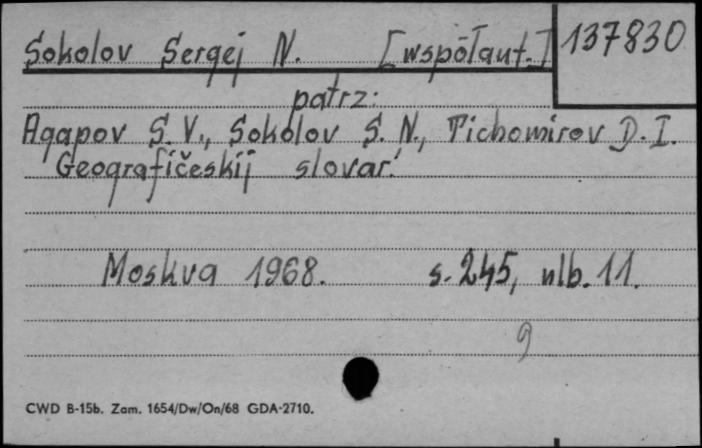 Sokolov Sergej N. [współaut.] 137830
patrz:
Agapov S. V., Sokolov S. N., Tichomirov D. I.
Geografičeskij slovar'.
Moskva 1968. s. 245, nlb. 11.
9
CWD B-15b. Zam. 1654/Dw/On/68 GDA-2710.